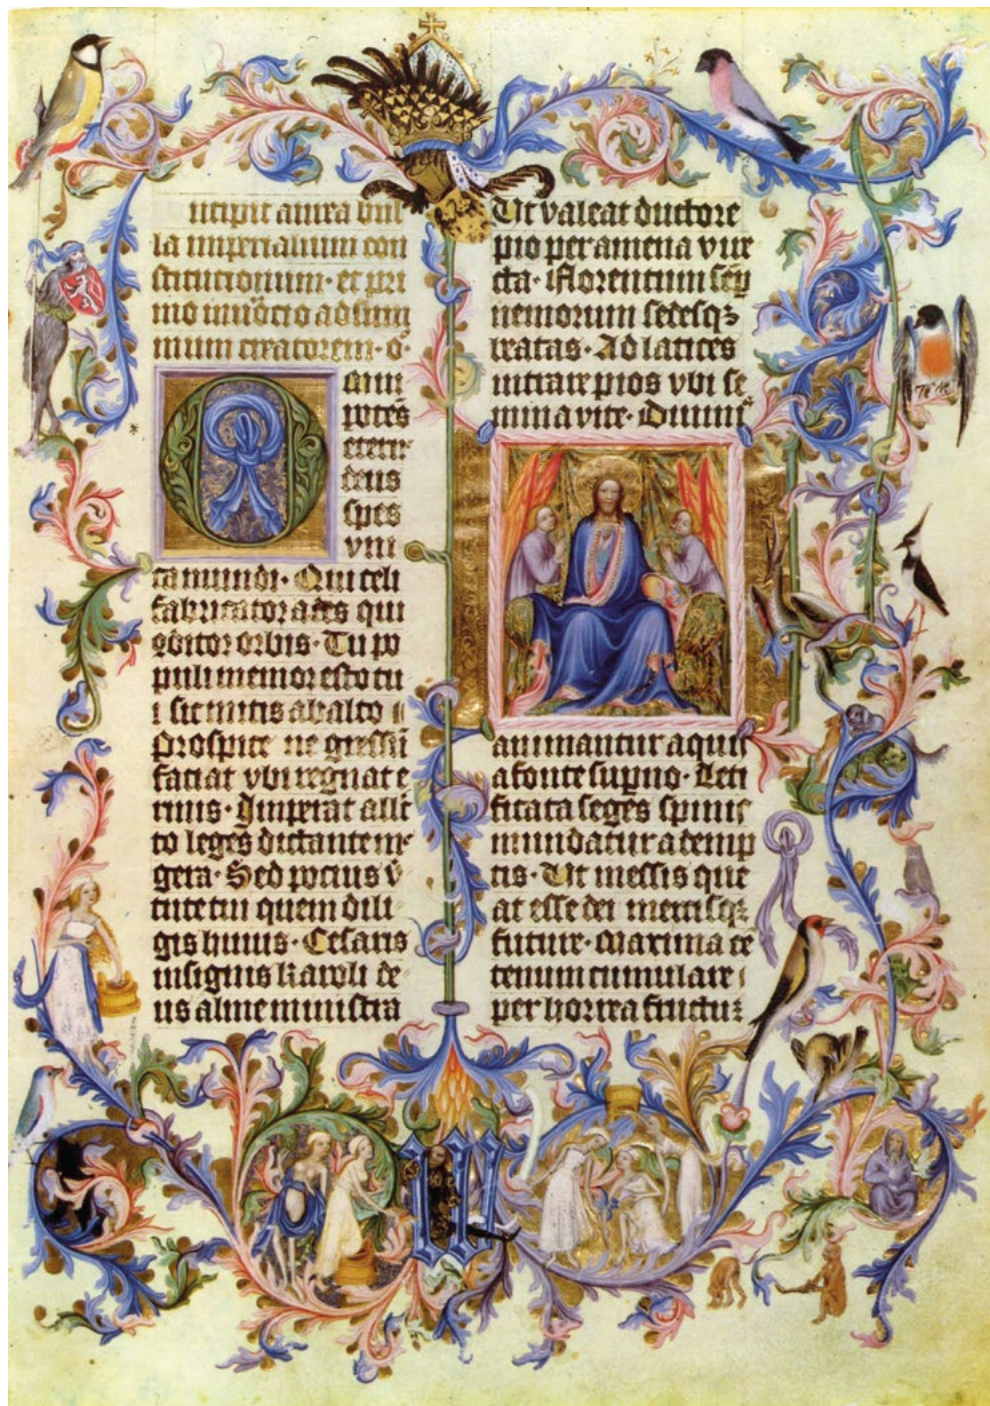 ncipit aurea bul
la imperialium con
stitucionum · et pri
mo inuocacio ad sum
mum creatorem · O
mni
potēs
eterne
deus
spes
vni
ca mundi · Qui celi
fabricator ades qui
cōditor orbis · Tu po
puli memor esto tu
i sic mitis ab alto
Prospice ne gressū
faciat vbi regnat e
rinis · Imperat alle
cto leges dictante me
gera · Sed pocius v̄
tute tui quem dili
gis huius · Cesaris
insignis karoli de
us alme ministra
Ut valeat ductore
pio per amena vire
cta · Florentum sēp̄
nemorum sedesqꝫ
beatas · Ad latices
intrare pios vbi se
mina vite · Diuinis
animantur aquis
a fonte suꝑno · Leti
ficata seges spinis
mundatur ademp
tis · Ut messis que
at esse dei mercisqꝫ
future · Maxima ce
tenum cumulare
per horrea fructuꝫ
W